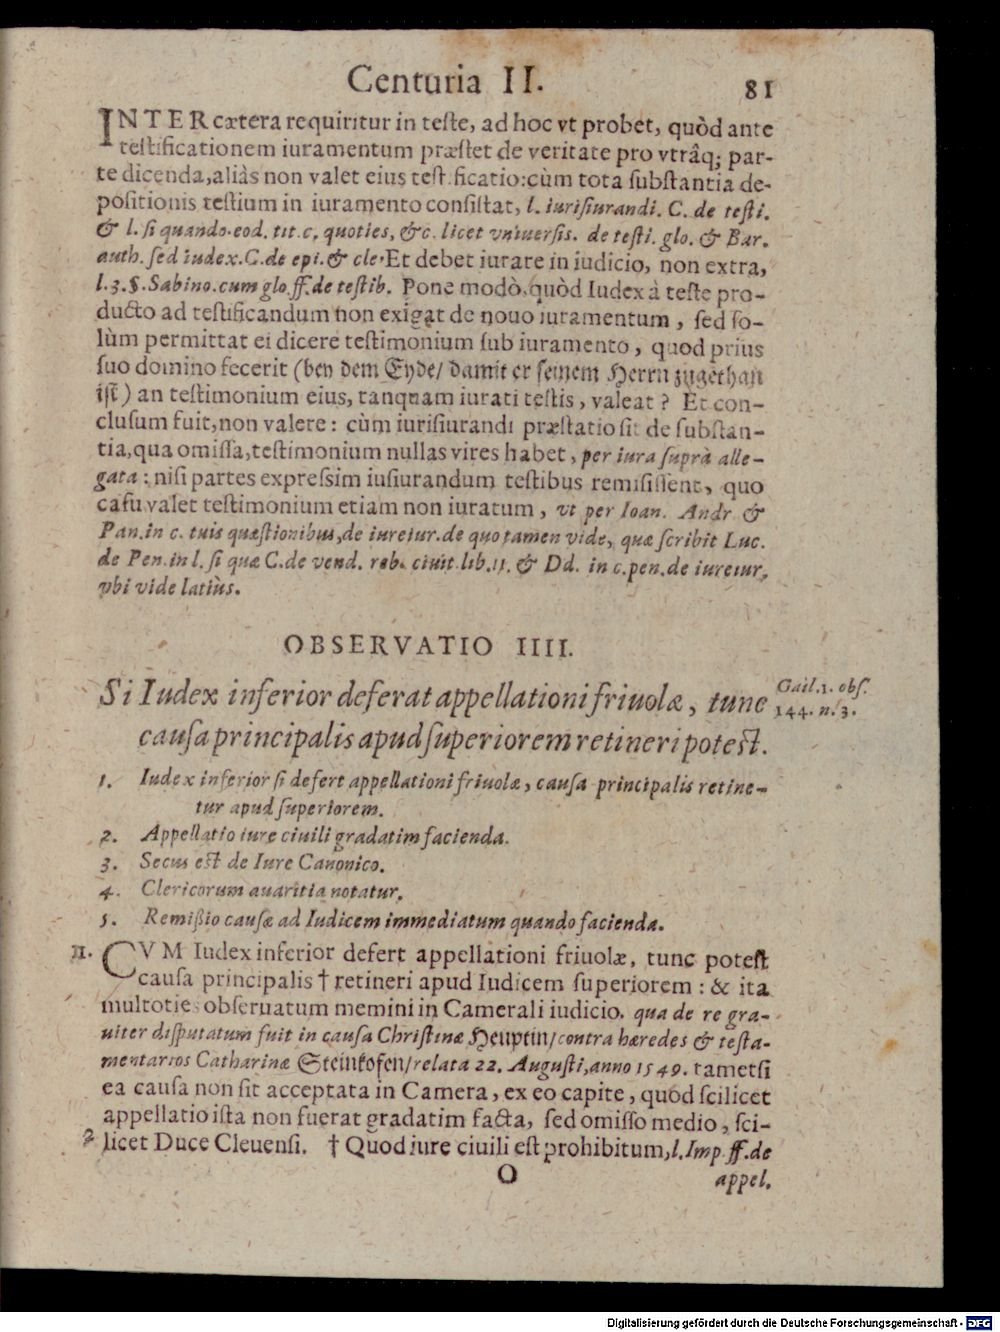 Centuria II.
81
INTER cætera requiritur in teste, ad hoc vt probet, quòd ante
testificationem iuramentum præstet de veritate pro vtrâq; par-
te dicenda, aliàs non valet eius testificatio: cùm tota substantia de-
positionis testium in iuramento consistat, l. iurisiurandi. C. de testi.
& l. si quando. eod. tit. c. quoties, &c. licet vniuersis. de testi. glo. & Bar.
auth. sed iudex. C. de epi. & cle. Et debet iurare in iudicio, non extra,
l. 3. §. Sabino. cum glo. ff. de testib. Pone modò, quòd Iudex à teste pro-
ducto ad testificandum non exigat de nouo iuramentum, sed so-
lùm permittat ei dicere testimonium sub iuramento, quod prius
suo domino fecerit (bey dem Eyde/ damit er seinem Herrn zugethan
ist) an testimonium eius, tanquam iurati testis, valeat? Et con-
clusum fuit, non valere: cùm iurisiurandi præstatio sit de substan-
tia, qua omissa, testimonium nullas vires habet, per iura suprà alle-
gata: nisi partes expressim iusiurandum testibus remisissent, quo
casu valet testimonium etiam non iuratum, vt per Ioan. Andr &
Pan. in c. tuis quæstionibus, de iureiur. de quo tamen vide, quæ scribit Luc.
de Pen. in l. si quæ C. de vend. reb. ciuit. lib. 11. & Dd. in c. pen. de iureiur.
vbi vide latiùs.
OBSERVATIO IIII.
Si Iudex inferior deferat appellationi friuolæ, tunc
causa principalis apud superiorem retineri potest.
Gail. 1. obs.
144. n. 3.
1. Iudex inferior si defert appellationi friuolæ, causa principalis retine-
tur apud superiorem.
2. Appellatio iure ciuili gradatim facienda.
3. Secus est de Iure Canonico.
4. Clericorum auaritia notatur.
5. Remißio causæ ad Iudicem immediatum quando facienda.
1. CVM Iudex inferior defert appellationi friuolæ, tunc potest
causa principalis † retineri apud Iudicem superiorem: & ita
multoties obseruatum memini in Camerali iudicio. qua de re gra-
uiter disputatum fuit in causa Christinæ Heuptin/ contra hæredes & testa-
mentarios Catharinæ Steinkofen/ relata 22. Augusti, anno 1549. tametsi
ea causa non sit acceptata in Camera, ex eo capite, quòd scilicet
appellatio ista non fuerat gradatim facta, sed omisso medio, sci-
2 licet Duce Cleuensi. † Quod iure ciuili est prohibitum, l. Imp. ff. de
O
appel.
Digitalisierung gefördert durch die Deutsche Forschungsgemeinschaft - DFG